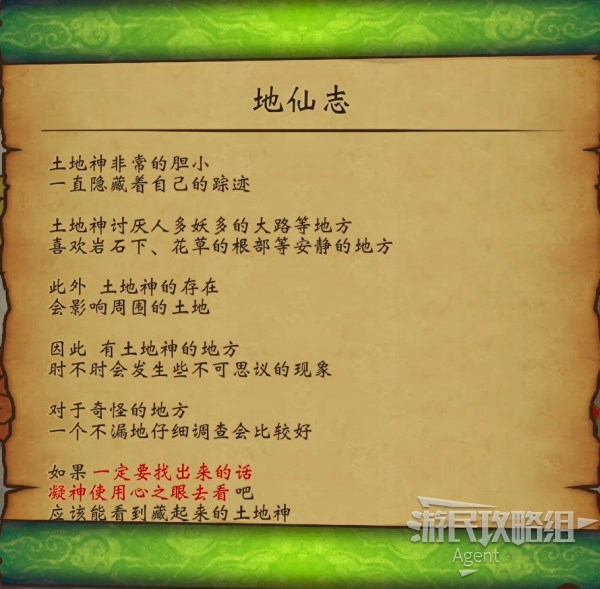 地仙志
土地神非常的胆小
一直隐藏着自己的踪迹
土地神讨厌人多妖多的大路等地方
喜欢岩石下、花草的根部等安静的地方
此外 土地神的存在
会影响周围的土地
因此 有土地神的地方
时不时会发生些不可思议的现象
对于奇怪的地方
一个不漏地仔细调查会比较好
如果一定要找出来的话
凝神使用心之眼去看吧
应该能看到藏起来的土地神
游民攻略组
Agent